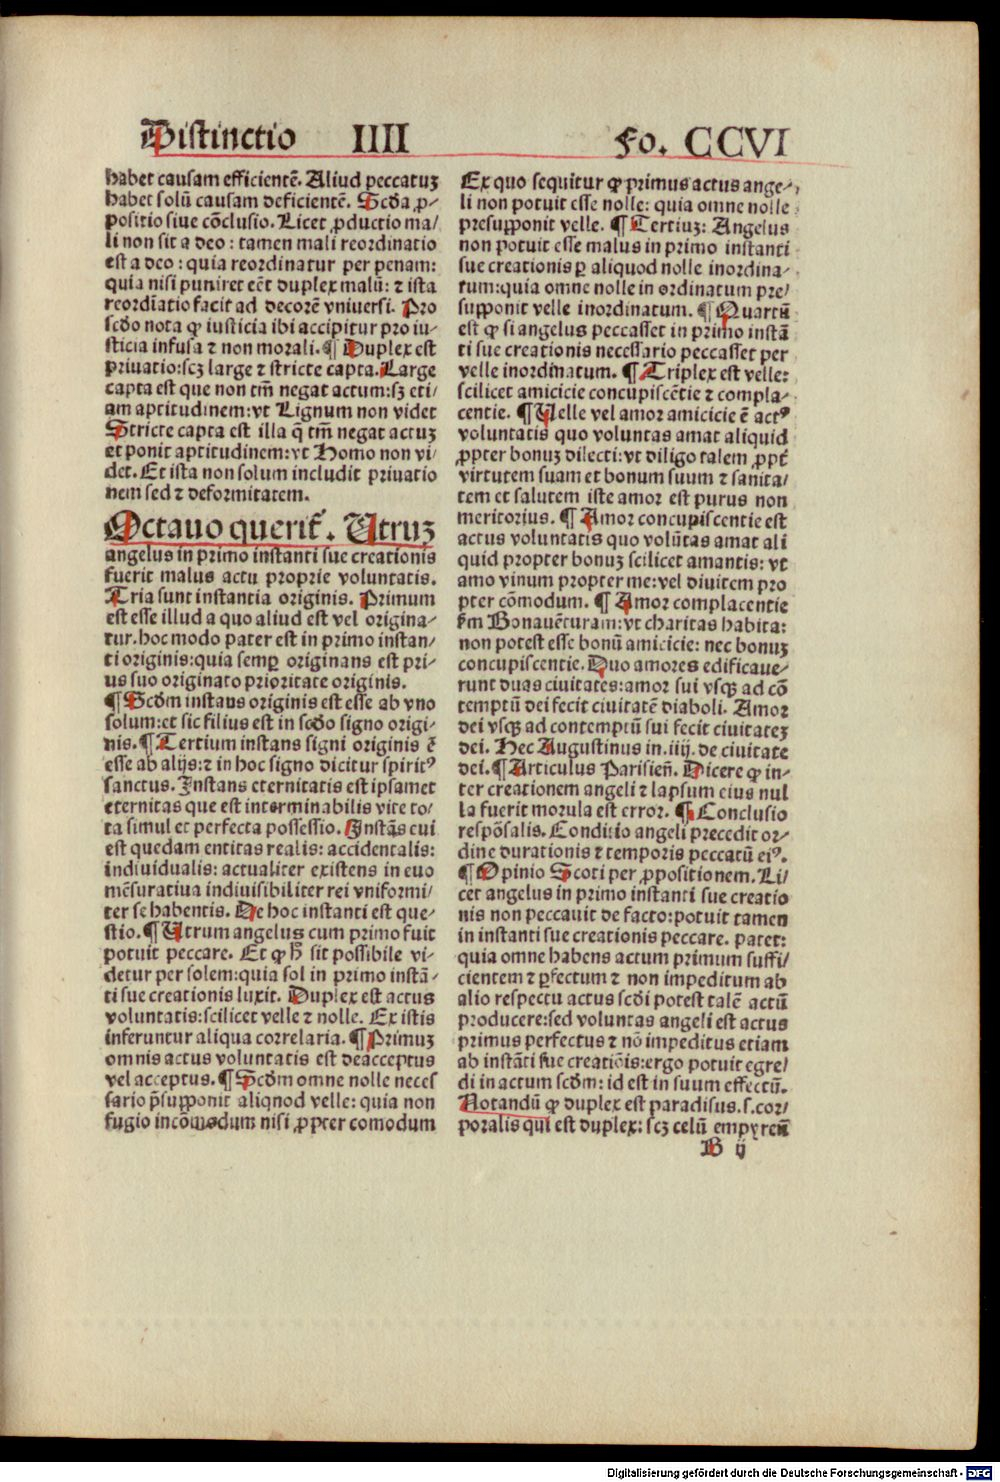 Distinctio IIII Fo. CCVI
habet causam efficientē. Aliud peccatuꝫ
habet solū causam deficientē. Scđa ꝓ-
positio siue cōclusio. Licet ꝓductio ma/
li non sit a deo: tamen mali reordinatio
est a deo: quia reordinatur per penam:
quia nisi puniret eēt duplex malū: ⁊ ista
reordīatio facit ad decorē vniuersi. Pro
scđo nota ꝙ iusticia ibi accipitur pro iu-
sticia infusa ⁊ non morali. ¶ Duplex est
priuatio: scꝫ large ⁊ stricte capta. Large
capta est que non tm̄ negat actum: sꝫ eti-
am aptitudinem: vt Lignum non videt
Stricte capta est illa q̄ tm̄ negat actuꝫ
et ponit aptitudinem: vt Homo non vi/
det. Et ista non solum includit priuatio
nem sed ⁊ deformitatem.
Octauo querit̄. Utruꝫ
angelus in primo instanti sue creationis
fuerit malus actu proprie voluntatis.
Tria sunt instantia originis. Primum
est esse illud a quo aliud est vel origina-
tur. hoc modo pater est in primo instan/
ti originis: quia semꝑ originans est pri/
us suo originato prioritate originis.
¶ Scđm instans originis est esse ab vno
solum: et sic filius est in scđo signo origi-
nis. ¶ Tertium instans signi originis ē
esse ab alijs: ⁊ in hoc signo dicitur spiritꝰ
sanctus. Instans eternitatis est ipsamet
eternitas que est interminabilis vite to/
ta simul et perfecta possessio. Instās eui
est quedam entitas realis: accidentalis:
indiuidualis: actualiter existens in euo
mēsuratiua indiuisibiliter rei vniformi/
ter se habentis. De hoc instanti est que-
stio. ¶ Utrum angelus cum primo fuit
potuit peccare. Et ꝙ h̄ sit possibile vi-
detur per solem: quia sol in primo instā-
ti sue creationis luxit. Duplex est actus
voluntatis: scilicet velle ⁊ nolle. Ex istis
inferuntur aliqua correlaria. ¶ Primuꝫ
omnis actus voluntatis est deacceptus
vel acceptus. ¶ Scđm omne nolle neces
sario p̄supponit aliqnod velle: quia non
fugio incōmodum nisi ꝓpter comodum
Ex quo sequitur ꝙ primus actus ange-
li non potuit esse nolle: quia omne nolle
presupponit velle. ¶ Tertiuꝫ: Angelus
non potuit esse malus in primo instanti
sue creationis ꝑ aliquod nolle inordina-
tum: quia omne nolle in ordinatum pre/
supponit velle inordinatum. ¶ Quartū
est ꝙ si angelus peccasset in primo instā
ti sue creationis necessario peccasset per
velle inordinatum. ¶ Triplex est velle:
scilicet amicicie concupiscētie ⁊ compla-
centie. ¶ Uelle vel amor amicicie ē actꝰ
voluntatis quo voluntas amat aliquid
ꝓpter bonuꝫ dilecti: vt diligo talem ꝓpt̄
virtutem suam et bonum suum ⁊ sanita/
tem et salutem iste amor est purus non
meritorius. ¶ Amor concupiscentie est
actus voluntatis quo volūtas amat ali
quid propter bonuꝫ scilicet amantis: vt
amo vinum propter me: vel diuitem pro
pter cōmodum. ¶ Amor complacentie
ẜm Bonauēturam: vt charitas habita:
non potest esse bonū amicicie: nec bonuꝫ
concupiscentie. Duo amores edificaue-
runt duas ciuitates: amor sui vsqꝫ ad cō
temptū dei fecit ciuitatē diaboli. Amor
dei vsqꝫ ad contemptū sui fecit ciuitateꝫ
dei. Hec Augustinus in. iiij. de ciuitate
dei. ¶ Articulus Parisień. Dicere ꝙ in-
ter creationem angeli ⁊ lapsum eius nul
la fuerit morula est error. ¶ Conclusio
respōsalis. Conditio angeli precedit or-
dine durationis ⁊ temporis peccatū eiꝰ.
¶ Opinio Scoti per ꝓpositionem. Li/
cet angelus in primo instanti sue creatio
nis non peccauit de facto: potuit tamen
in instanti sue creationis peccare. patet:
quia omne habens actum primum suffi/
cientem ⁊ ꝑfectum ⁊ non impeditum ab
alio respectu actus scđi potest talē actū
producere: sed voluntas angeli est actus
primus perfectus ⁊ nō impeditus etiam
ab instāti sue creatiōis: ergo potuit egre/
di in actum scđm: id est in suum effectū.
Notandū ꝙ duplex est paradisus. s. cor/
poralis qui est duplex: scꝫ celū empyreū
B ij
Digitalisierung gefördert durch die Deutsche Forschungsgemeinschaft - DFG